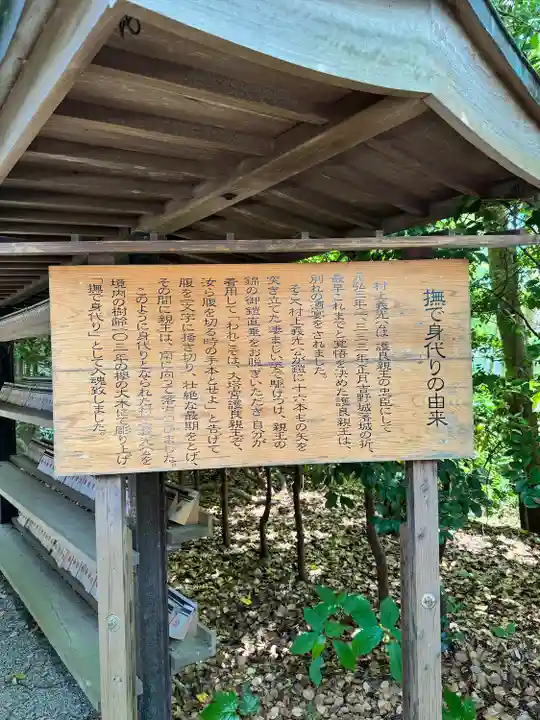 撫で身代りの由来
村上義光公は、護良親王の忠臣にして
元弘三年(一三三三年)正月吉野城落城の折、
最早これまでと覚悟を決めた護良親王は、
別れの酒宴をされました。
そこへ村上義光公が鎧に十六本もの矢を
突き立てた凄まじい姿で駆けつけ、親王の
錦の御鎧直垂をお脱ぎいただき自分が
着用して「われこそは、大塔宮護良親王ぞ、
汝ら腹を切る時の手本とせよ」と告げて
腹を一文字に掻き切り、壮絶な最期をとげ、
その間に親王は、南に向って落ちのびました。
このように身代りとなられた村上義光公を
境内の樹齢一〇三年の欅の大木にて彫り上げ
「撫で身代り」として入魂致しました。